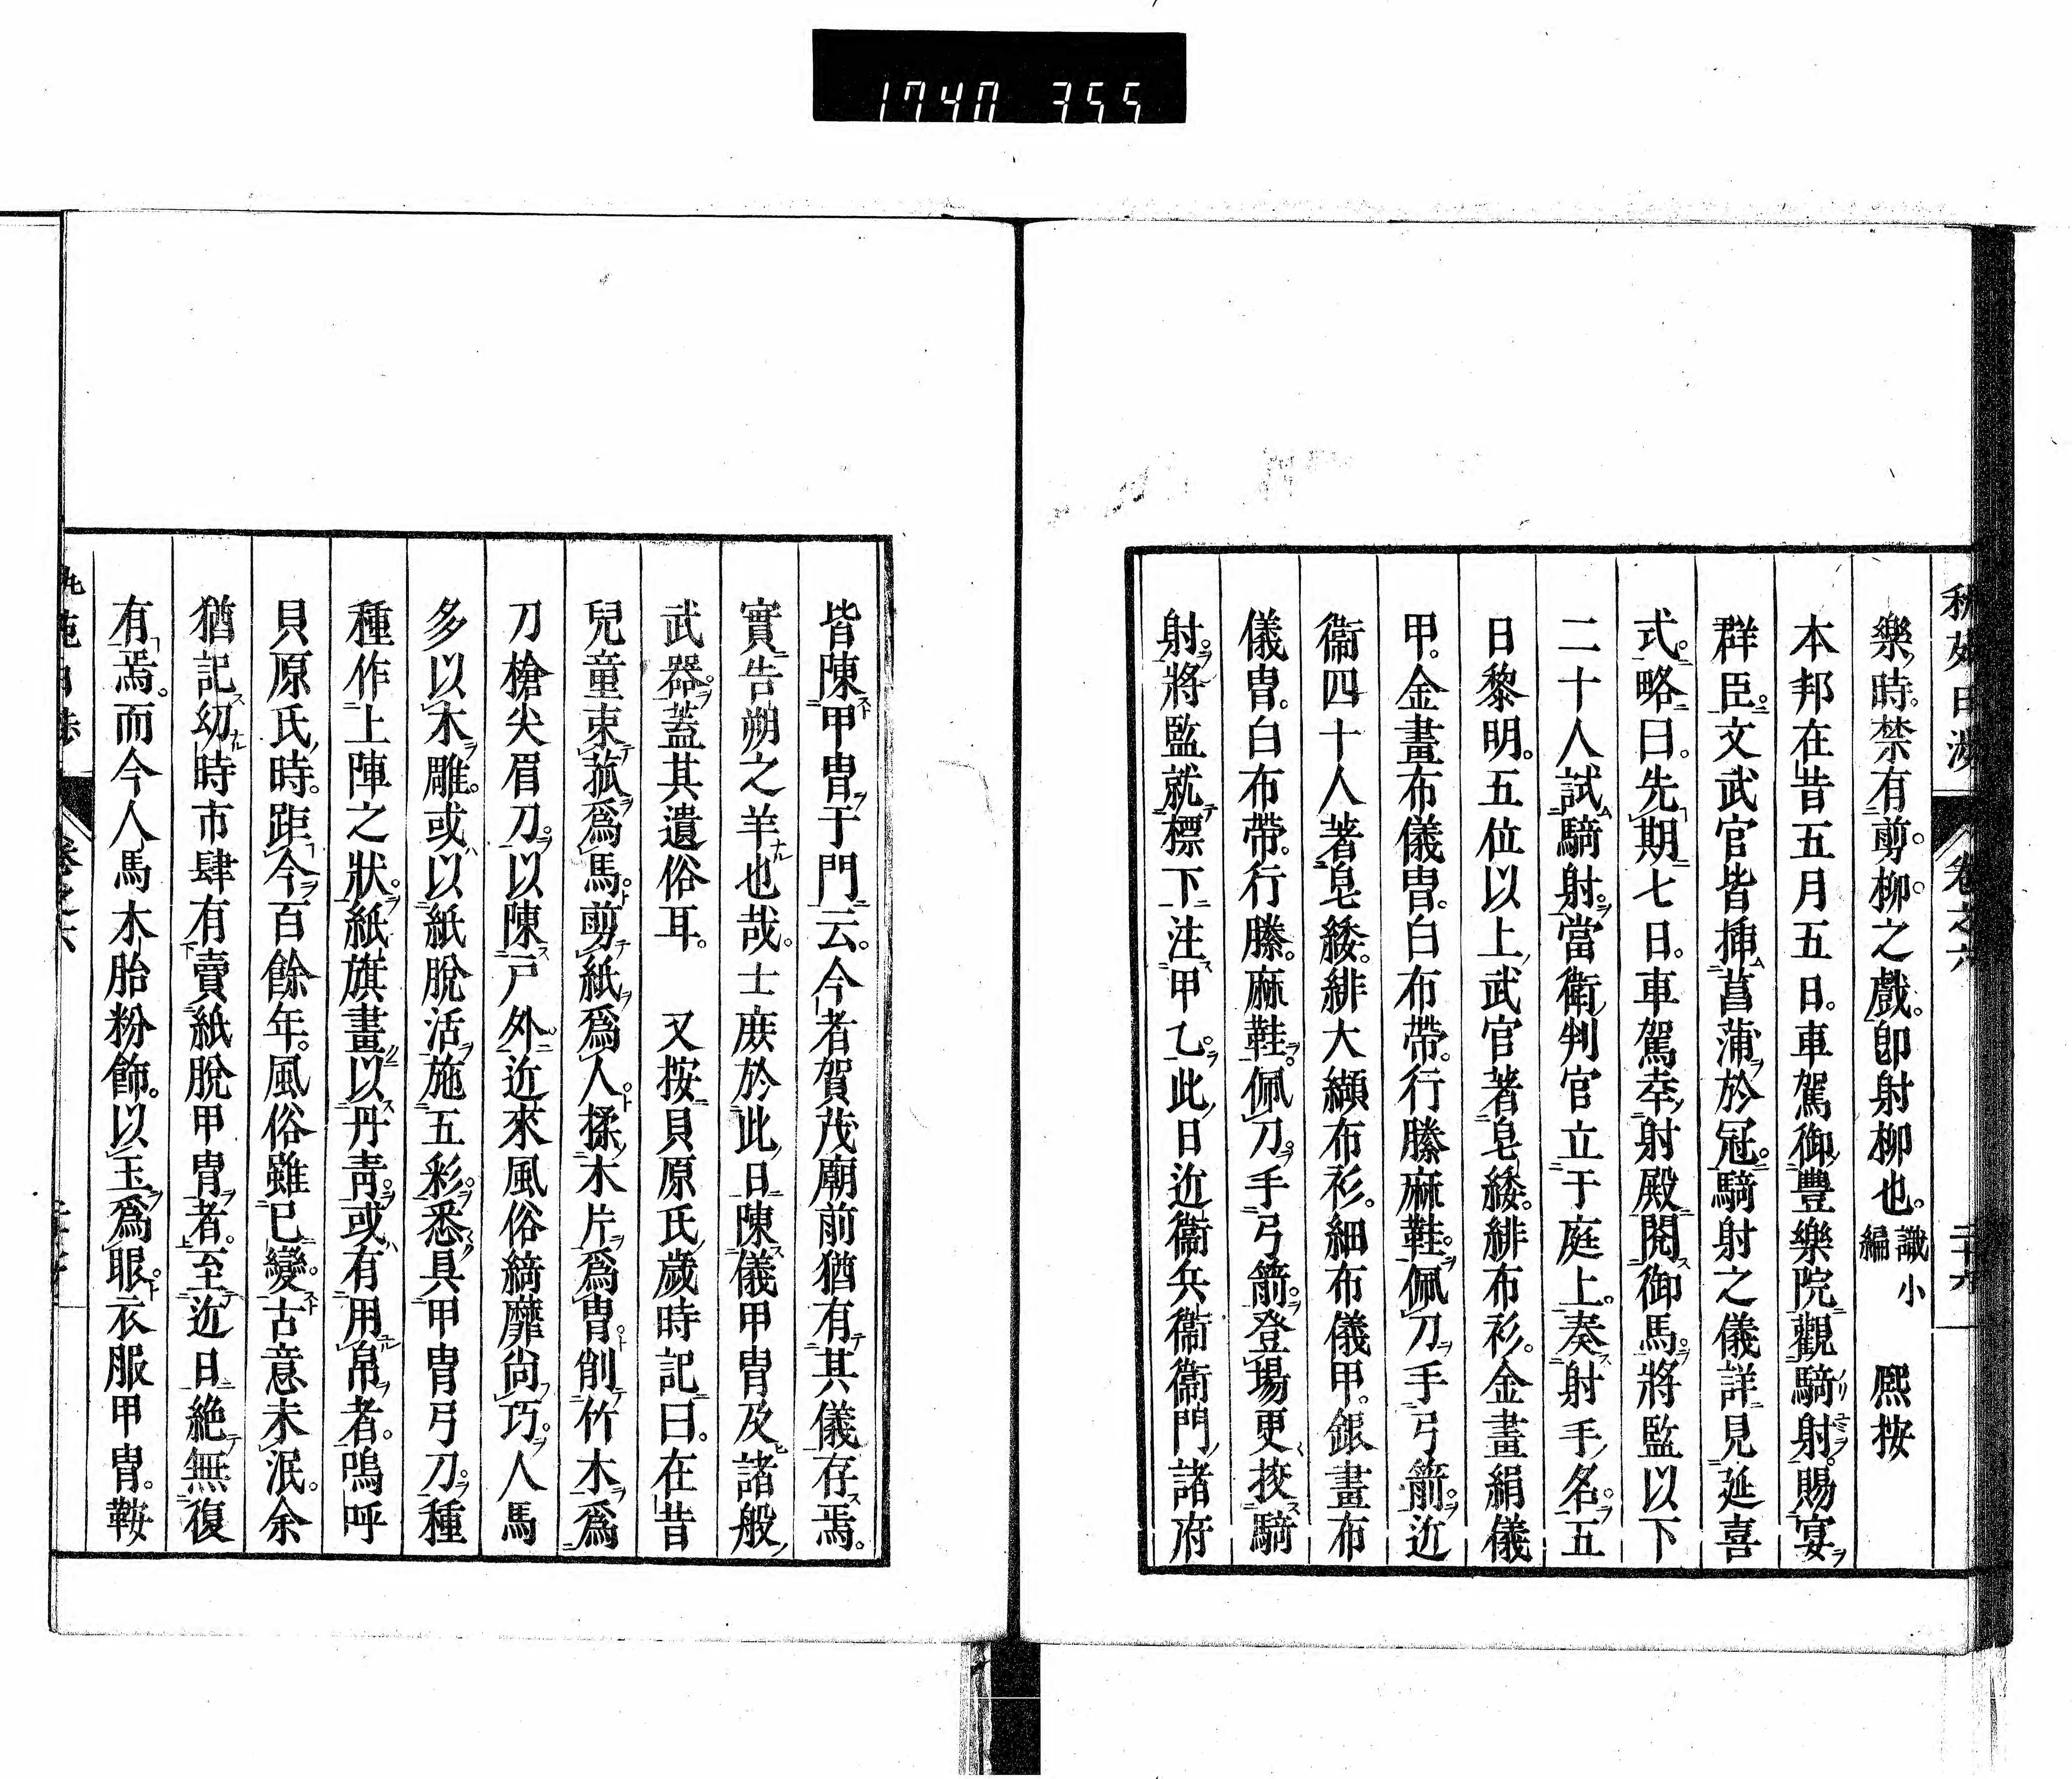 1740 355
卷之六
二十六
樂時。禁有剪。柳。之戲。卽射柳也。識小編 熈按
本邦在昔五月五日。車駕御豐樂院觀騎射。賜宴
群臣。文武官皆揷菖蒲於冠。騎射之儀詳見延喜
式。略曰。先期七日。車駕幸射殿閱御馬。將監以下
二十人試騎射。當衛判官立于庭上。奏射手名。五
日黎明。五位以上武官著皂緌。緋布衫。金畫絹儀
甲。金畫布儀冑。白布帶。行縢麻鞋。佩刀手弓箭。近
衞四十人著皂緌。緋大纈布衫。細布儀甲。銀畫布
儀冑。白布帶。行縢。麻鞋。佩刀。手弓箭。登場更挍騎
射。將監就標下注甲乙。此日近衞兵衞衞門諸府
皆陳甲冑于門云。今者賀茂廟前猶有其儀存焉。
實告朔之羊也哉。士庻於此日陳儀甲冑及諸般
武器。蓋其遺俗耳。 又按貝原氏歲時記曰。在昔
兒童束菰爲馬。剪紙爲人。揉木片爲冑。削竹木爲
刀槍尖眉刀。以陳戸外。近來風俗綺靡尙巧。人馬
多以木雕。或以紙脫活施五彩。悉具甲冑弓刀。種
種作上陣之狀。紙旗畫以丹靑。或有用帛者。嗚呼
貝原氏時。距今百餘年。風俗雖已變。古意未泯。余
猶記幼時市肆有賣紙脫甲冑者。至近日絶無復
有焉。而今人馬木胎粉飾。以玉爲眼。衣服甲冑。鞍
卷之六